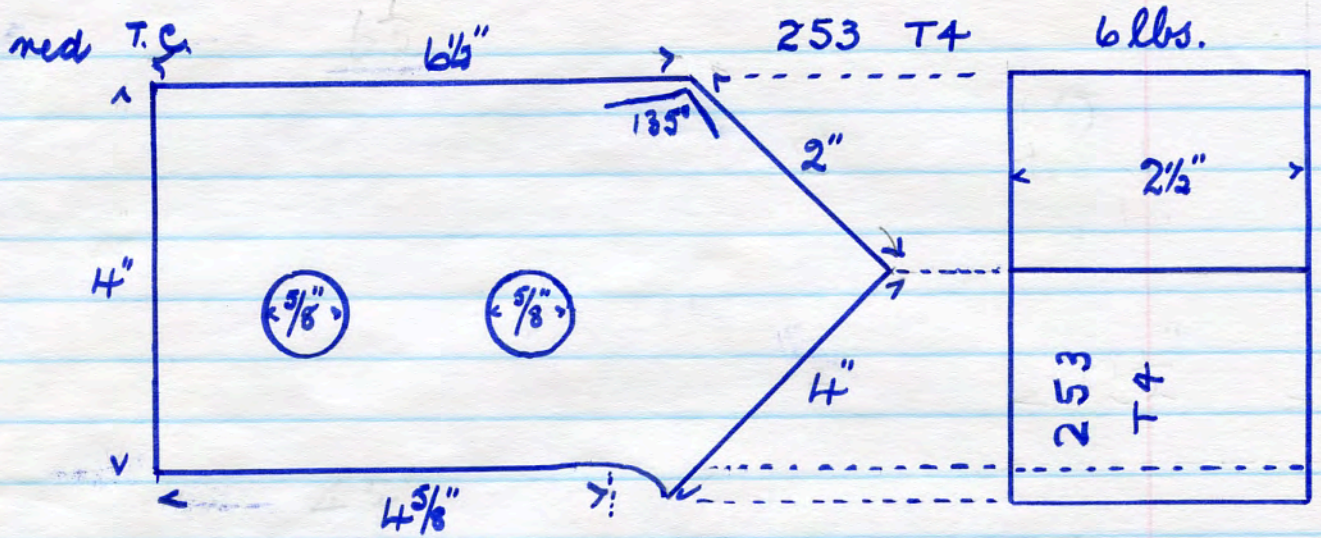 red T.C.
6½"
253 T4
6 lbs.
135°
2"
2½"
4"
5/8"
5/8"
4"
253
T4
4 5/8"